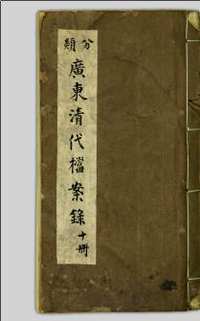 分類
廣東清代檔案錄
十冊